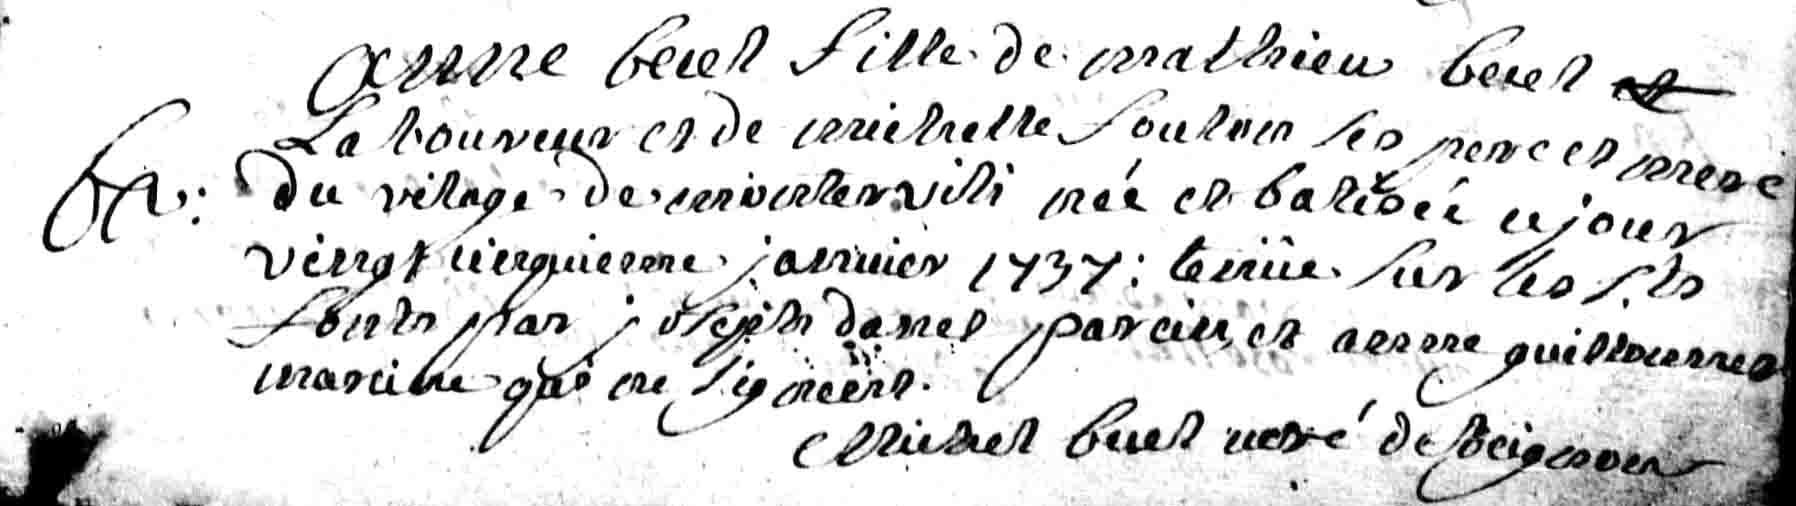 Anne becel fille de mathieu becel
Laboureur et de michelle soulon ses pere et mere
ba: du vilage de monterviti née et batisée ce jour
vingt cinquieme janvier 1737: tenüe sur les s.ts
fonts par joseph danet parain, et anne
maraine qui ne signent.
Michel becel curé de